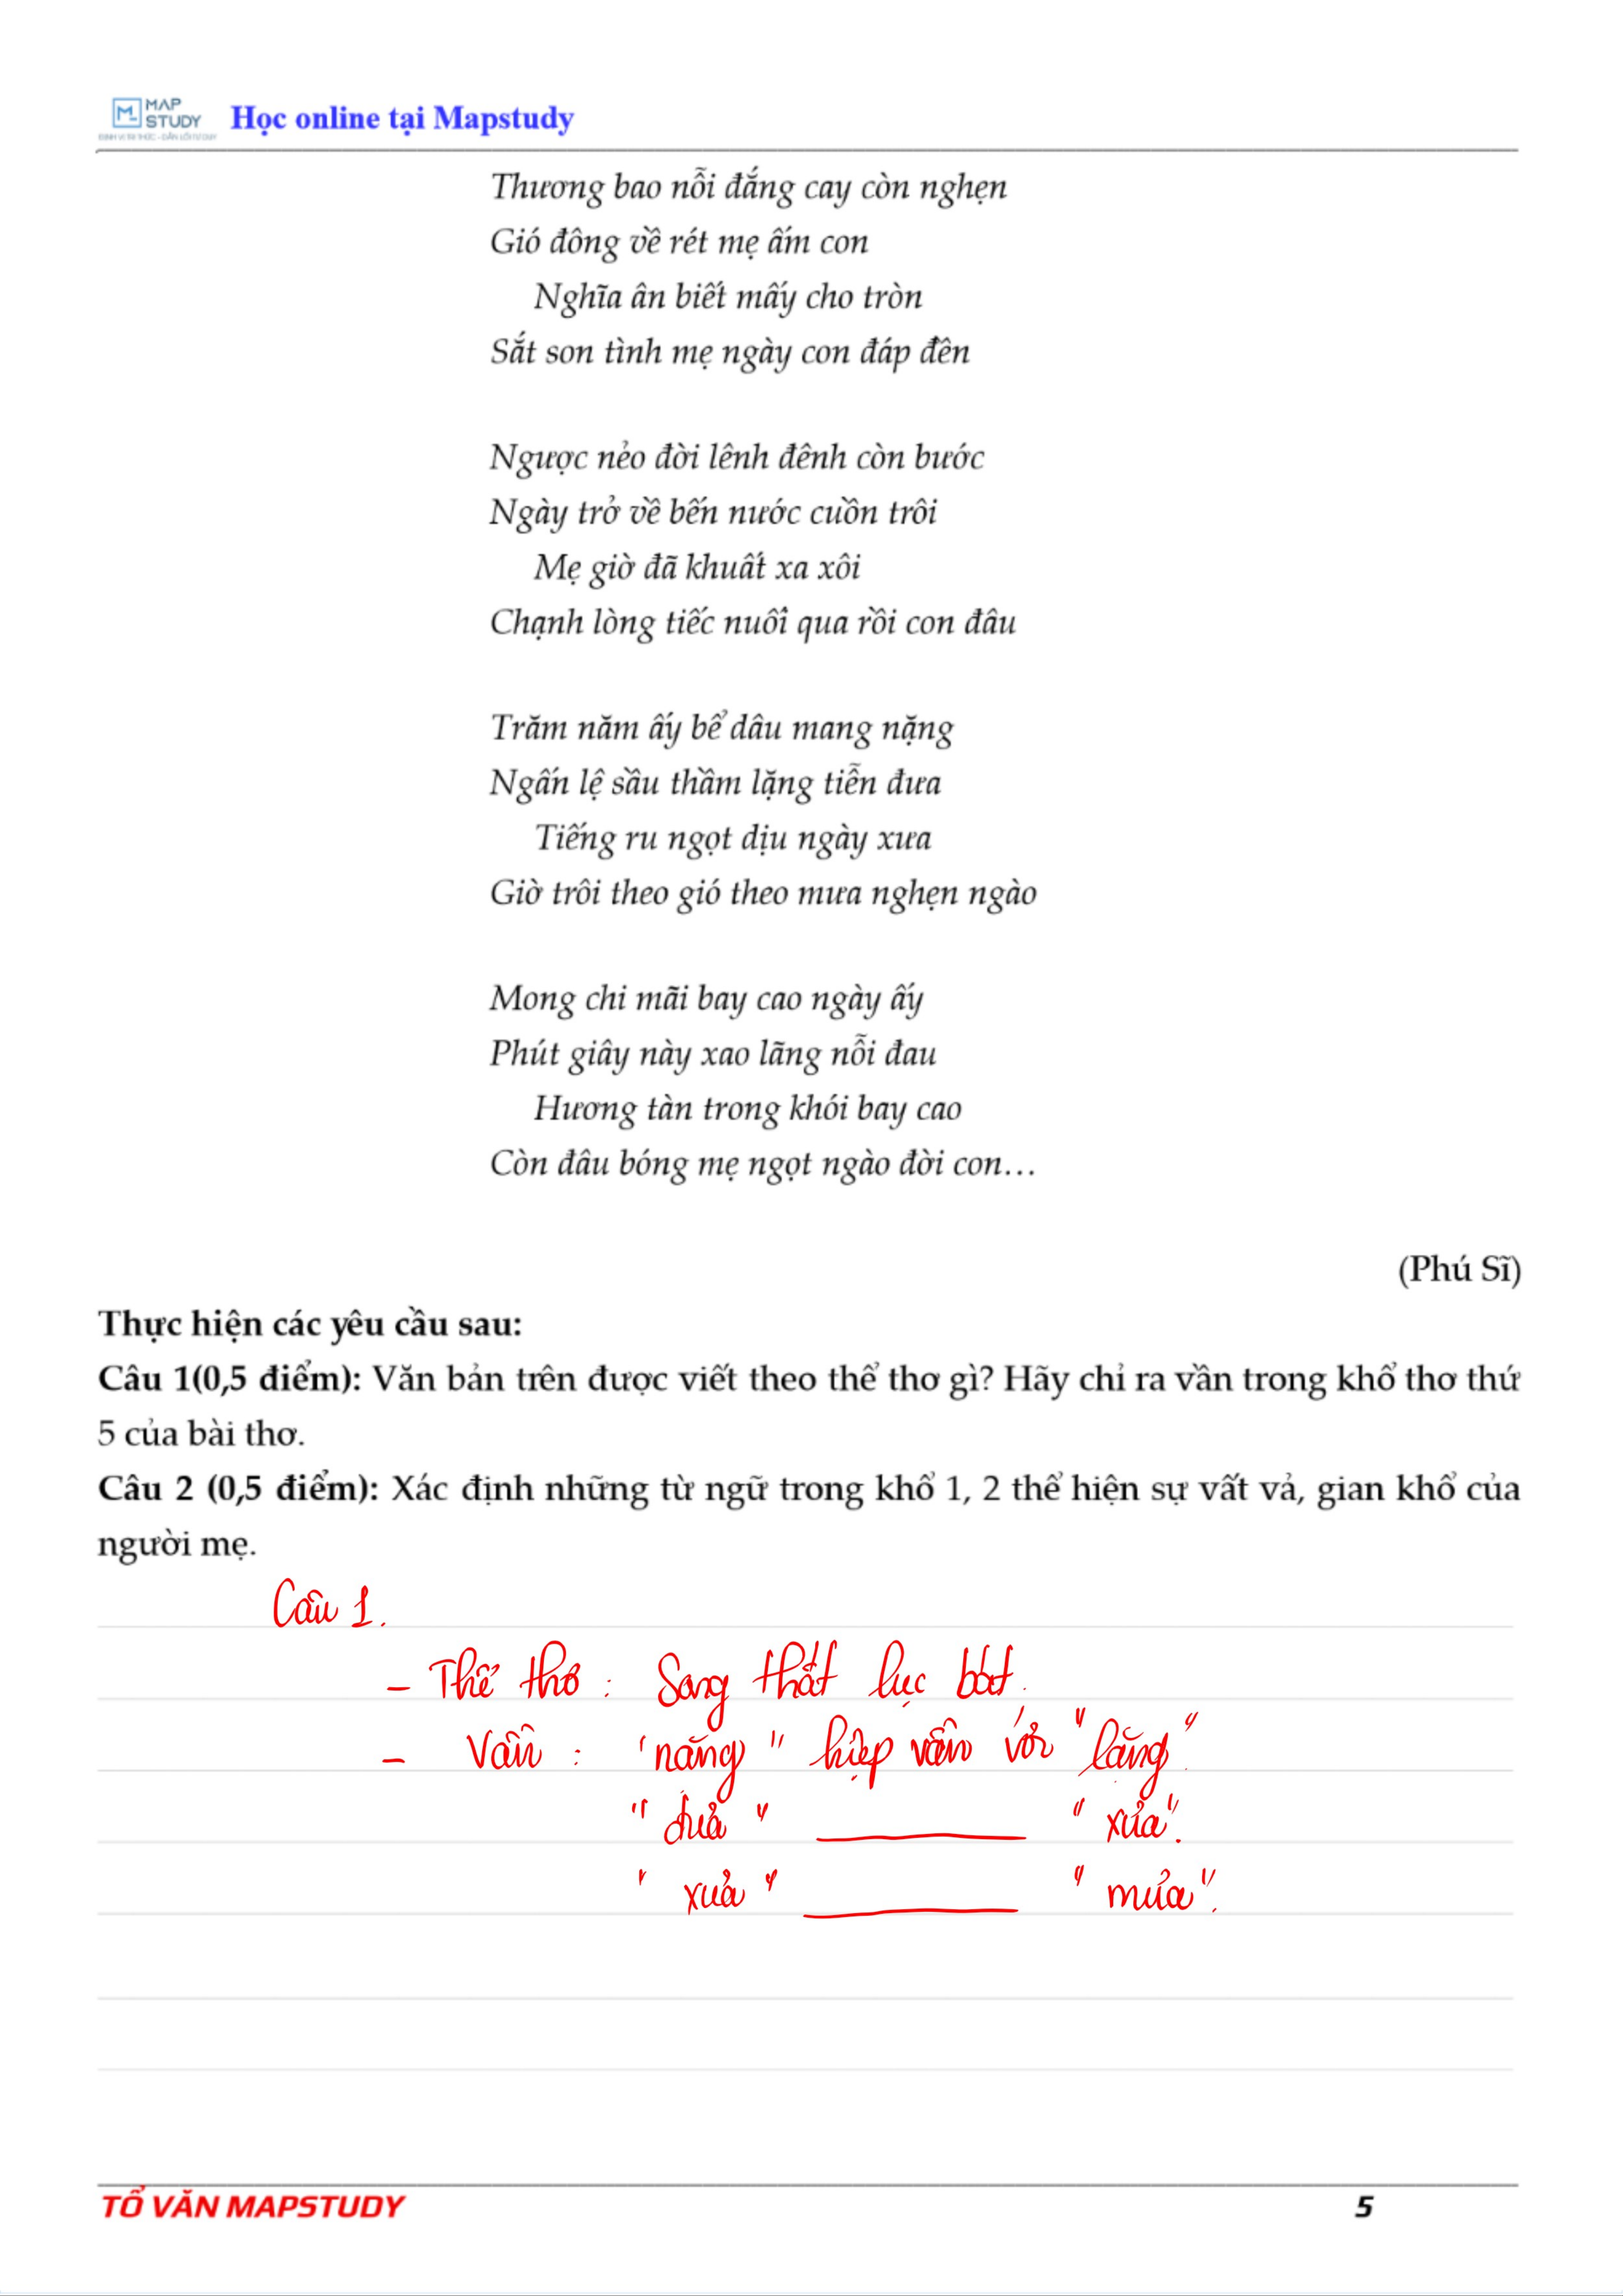 MAP
STUDY
ĐỊNH VỊ TRI THỨC - DẪN LỐI TƯ DUY
Học online tại Mapstudy
Thương bao nỗi đắng cay còn nghẹn
Gió đông về rét mẹ ấm con
Nghĩa ân biết mấy cho tròn
Sắt son tình mẹ ngày con đáp đền
Ngược nẻo đời lênh đênh còn bước
Ngày trở về bến nước cuồn trôi
Mẹ giờ đã khuất xa xôi
Chạnh lòng tiếc nuối qua rồi con đâu
Trăm năm ấy bể dâu mang nặng
Ngấn lệ sầu thầm lặng tiễn đưa
Tiếng ru ngọt dịu ngày xưa
Giờ trôi theo gió theo mưa nghẹn ngào
Mong chi mãi bay cao ngày ấy
Phút giây này xao lãng nỗi đau
Hương tàn trong khói bay cao
Còn đâu bóng mẹ ngọt ngào đời con...
(Phú Sĩ)
Thực hiện các yêu cầu sau:
Câu 1(0,5 điểm): Văn bản trên được viết theo thể thơ gì? Hãy chỉ ra vần trong khổ thơ thứ
5 của bài thơ.
Câu 2 (0,5 điểm): Xác định những từ ngữ trong khổ 1, 2 thể hiện sự vất vả, gian khổ của
người mẹ.
Câu 1.
- Thể thơ : Song thất lục bát.
- Vần : "nặng" hiệp vần với "lặng".
"đưa" ———— "xưa".
"xưa" ———— "mưa".
TỔ VĂN MAPSTUDY 5